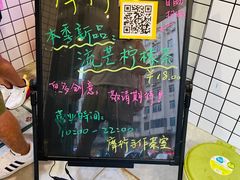 本季新品：
流芒柠檬茶
￥18.00
自多创意，敬请期待！
营业时间：
10:00-22:00
手作茶室